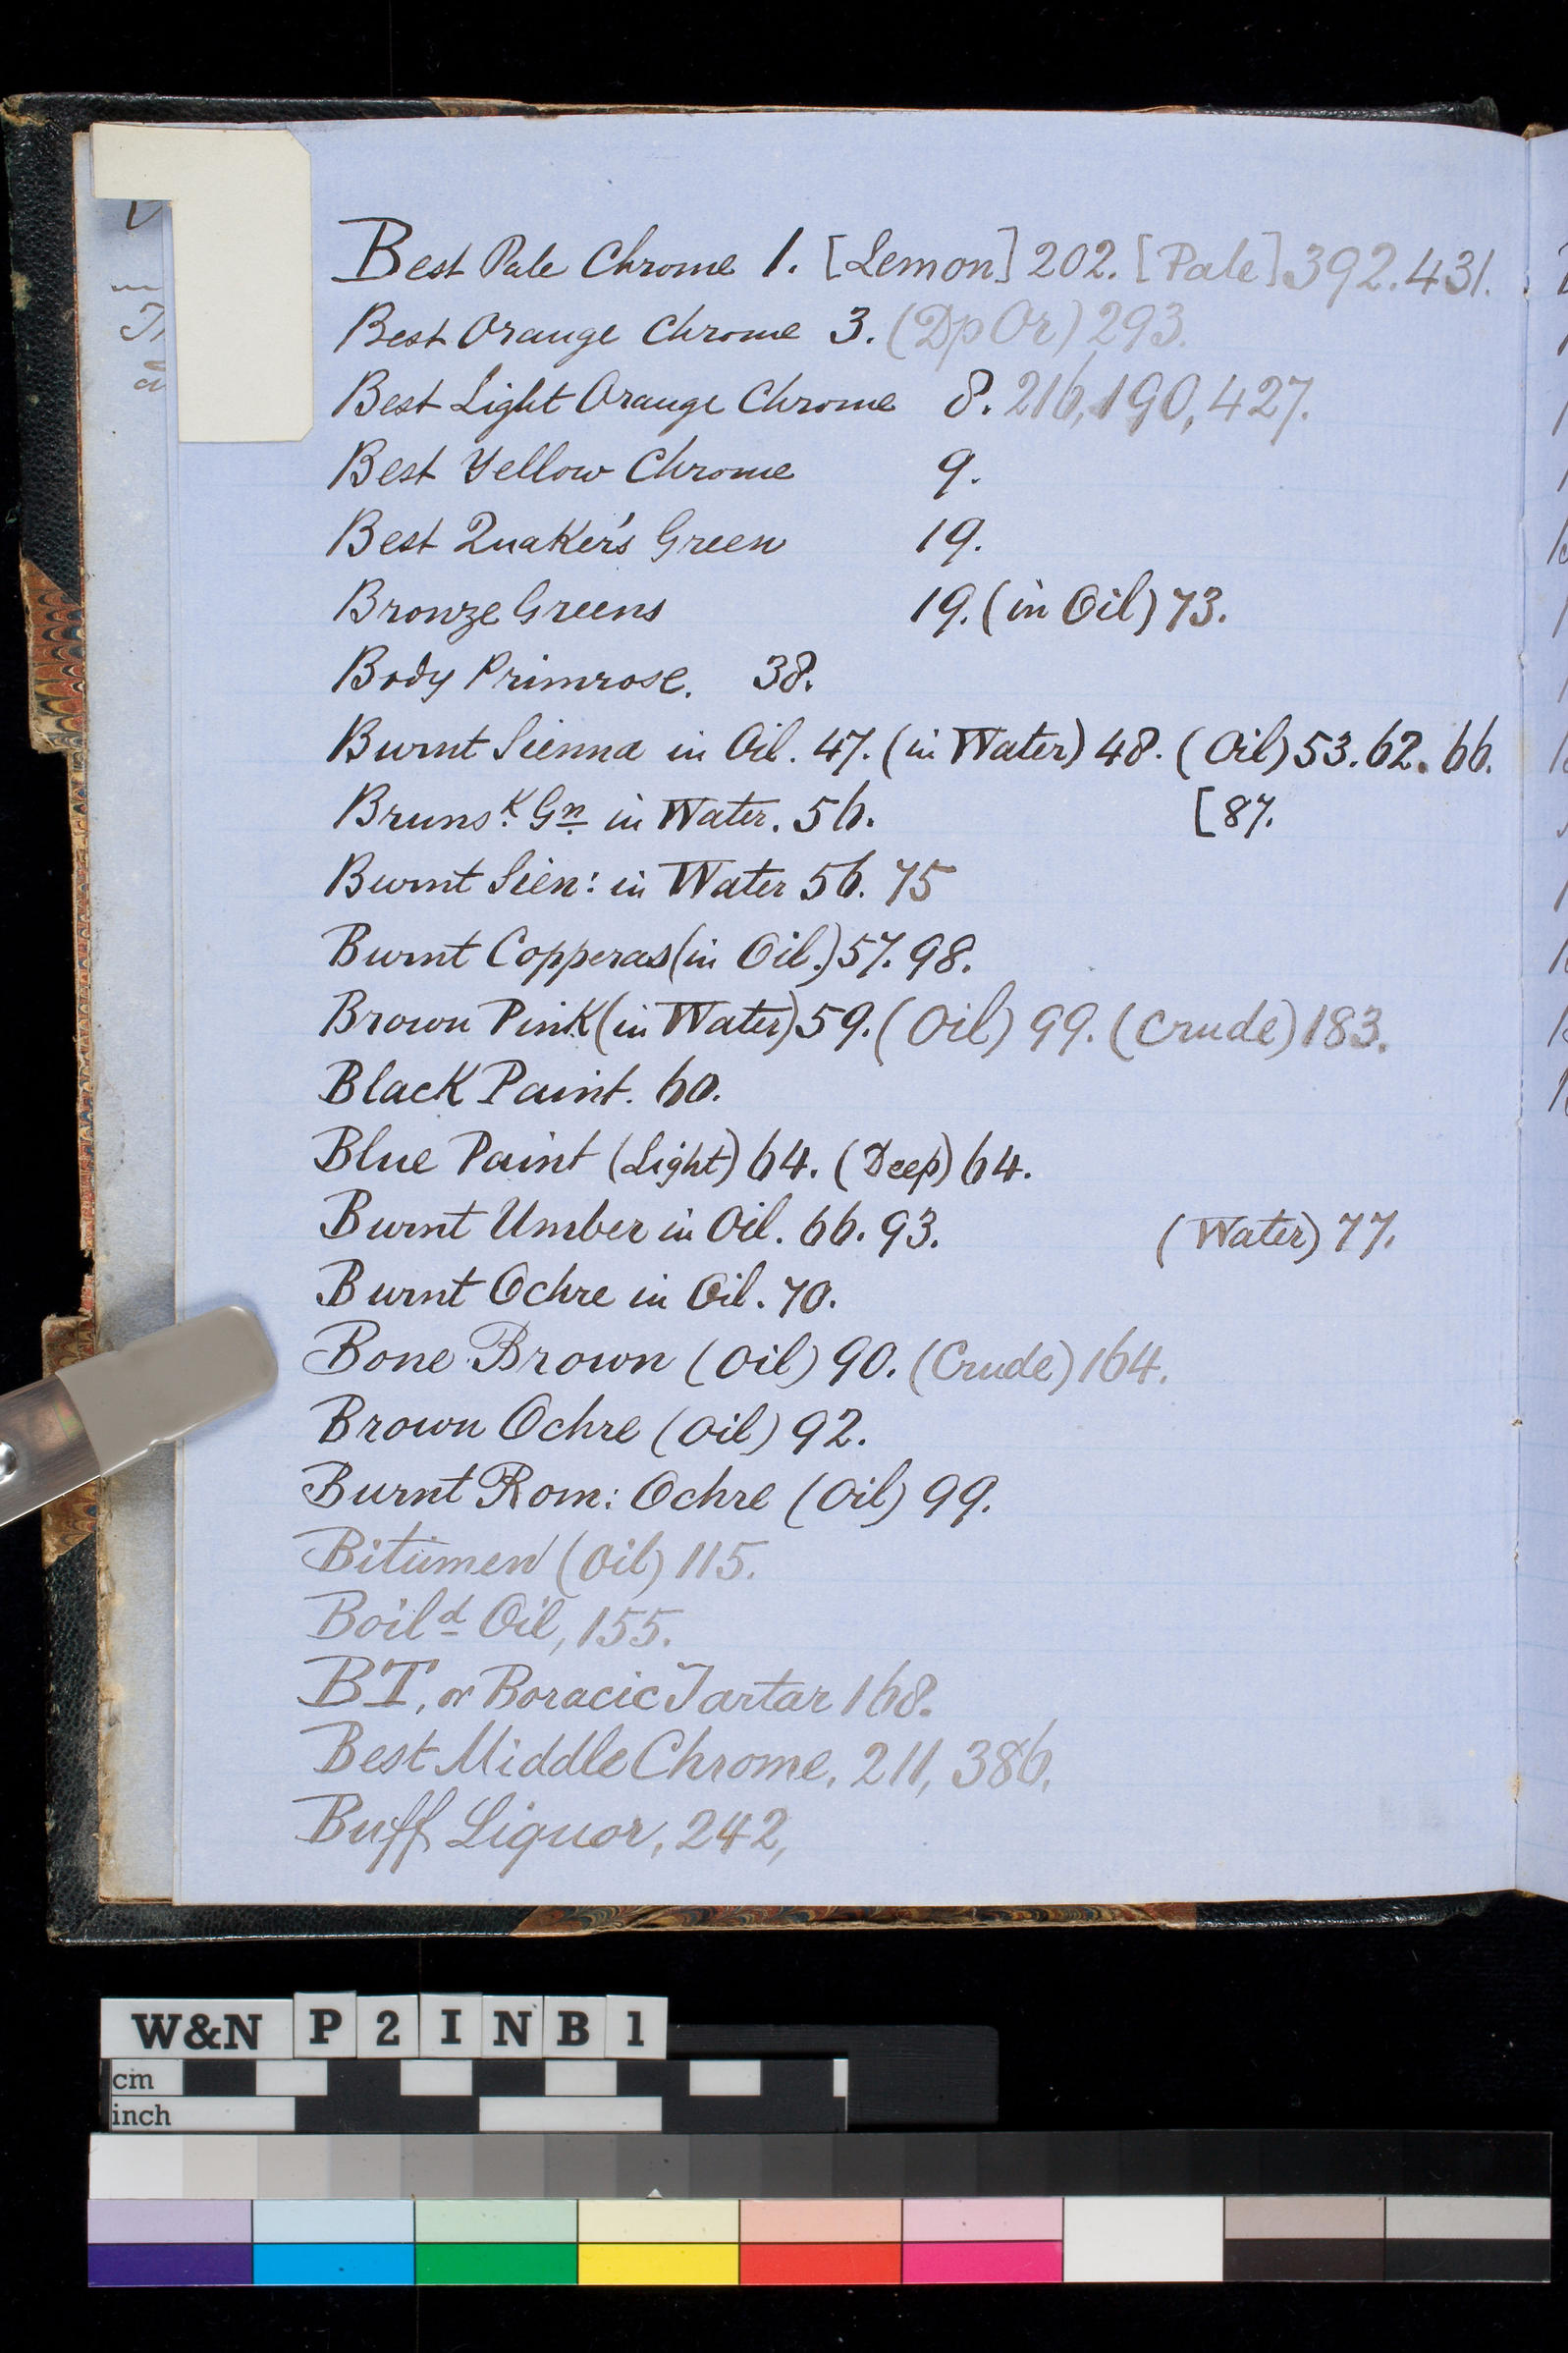 Best Pale Chrome 1. [Lemon] 202. [Pale] 392. 431.
Best Orange Chrome 3. (Dp Or) 293.
Best Light Orange Chrome 8. 216, 190, 427.
Best Yellow Chrome 9.
Best Quaker's Green 19.
Bronze Greens 19. (in Oil) 73.
Body Primrose. 38.
Burnt Sienna in Oil. 47. (in Water) 48. (Oil) 53. 62. 66.
Brunsk. Gn. in Water. 56. [87.
Burnt Sien: in Water 56. 75
Burnt Copperas (in Oil.) 57. 98.
Brown Pink (in Water) 59. (Oil) 99. (Crude) 183.
Black Paint. 60.
Blue Paint (Light) 64. (Deep) 64.
Burnt Umber in Oil. 66. 93. (Water) 77.
Burnt Ochre in Oil. 70.
Bone Brown (Oil) 90. (Crude) 164.
Brown Ochre (Oil) 92.
Burnt Rom: Ochre (Oil) 99.
Bitumen (Oil) 115.
Boild Oil, 155.
BT, or Boracic Tartar 168.
Best Middle Chrome, 211, 386,
Buff Liquor, 242,
W&N P2INB1
cm
inch